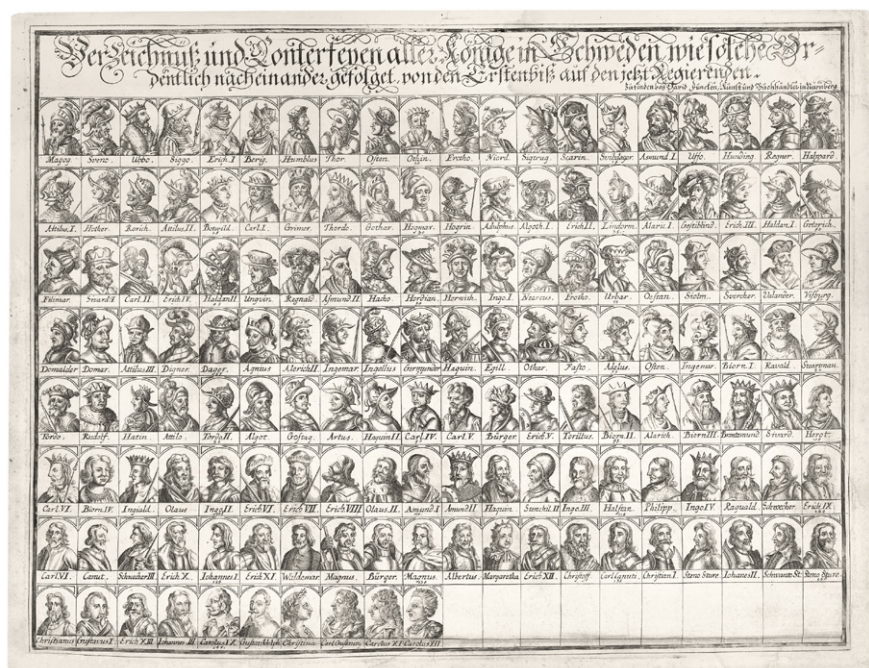 Verzeichnuß und Conterfeyen aller Könige in Schweden wie solche Or-
dentlich nacheinander gefolget, von den Ersten biß auf den jetzt Regierenden.
Zufinden bey David Funcken, Kunst und Buchhändler in Nürnberg
Magog. Sveno. Ubbo. Siggo. Erich. I Berig. Humblus Thor. Osten. Othin. Frotho. Niord. Sigtrug. Scarin. Asmund I. Uffo. Hunding. Regner. Halvard
Attilus. I. Hother. Rorich. Attilus. II. Botwild. Carl. I. Grimer. Thordo. Gothar. Hogmar. Hogrin. Adulphus. Algoth. I. Erich II. Lindorm. Alaric. I. Gestiblind. Erich. III. Haldan. I.
Filmar. Sivard. I. Carl. II Erich. IV. Haldan II Unguin. Regnald. Asmund II. Hacho Horwith. Ingo. I. Nearcus. Frotho. Urbar. Oestan. Siolm. Svercher. Valander. Visburg.
Domalder Domar. Attilus III. Digner. Dager. Agnius Alerich II. Ingemar. Ingellus Germunder Haquin. Egill. Othar. Fasto. Adelus. Osten. Ingemar. Biorn. I. Ravald.
Tordo. Rudolf. Hatin. Attilo. Tordo. II. Algot. Gostag. Artus. Haquin II. Carl. IV. Carl. V. Bürger. Erich. V. Torillus. Biorn. II. Alarich. Biorn III. Sivard. Herot.
Carl. VI. Biorn. IV. Ingiald. Olaus Ingo. II Erich VI. Erich VII. Erich VIII Olaus. II. Amund I. Amund II Haquin Stenchil. II Ingo. III. Halstan. Philipp. Ingo IV. Raguald. Schwercher. Erich. IX
Carl. VI. Canut. Schwecher III. Erich X. Iohannes I. Erich XI. Woldemar. Magnus. Bürger. Magnus Albertus. Margaretha Erich XII. Christoff Carl Canut. Christian I. Steno Sture Iohanes II. Schwante St. Steno Sture.
Christianus Gustavus I. Erich XIII. Iohannes III Carolus IX Gustav Adolph. Christina Carl Gustavus. Carolus XI Carolus XII